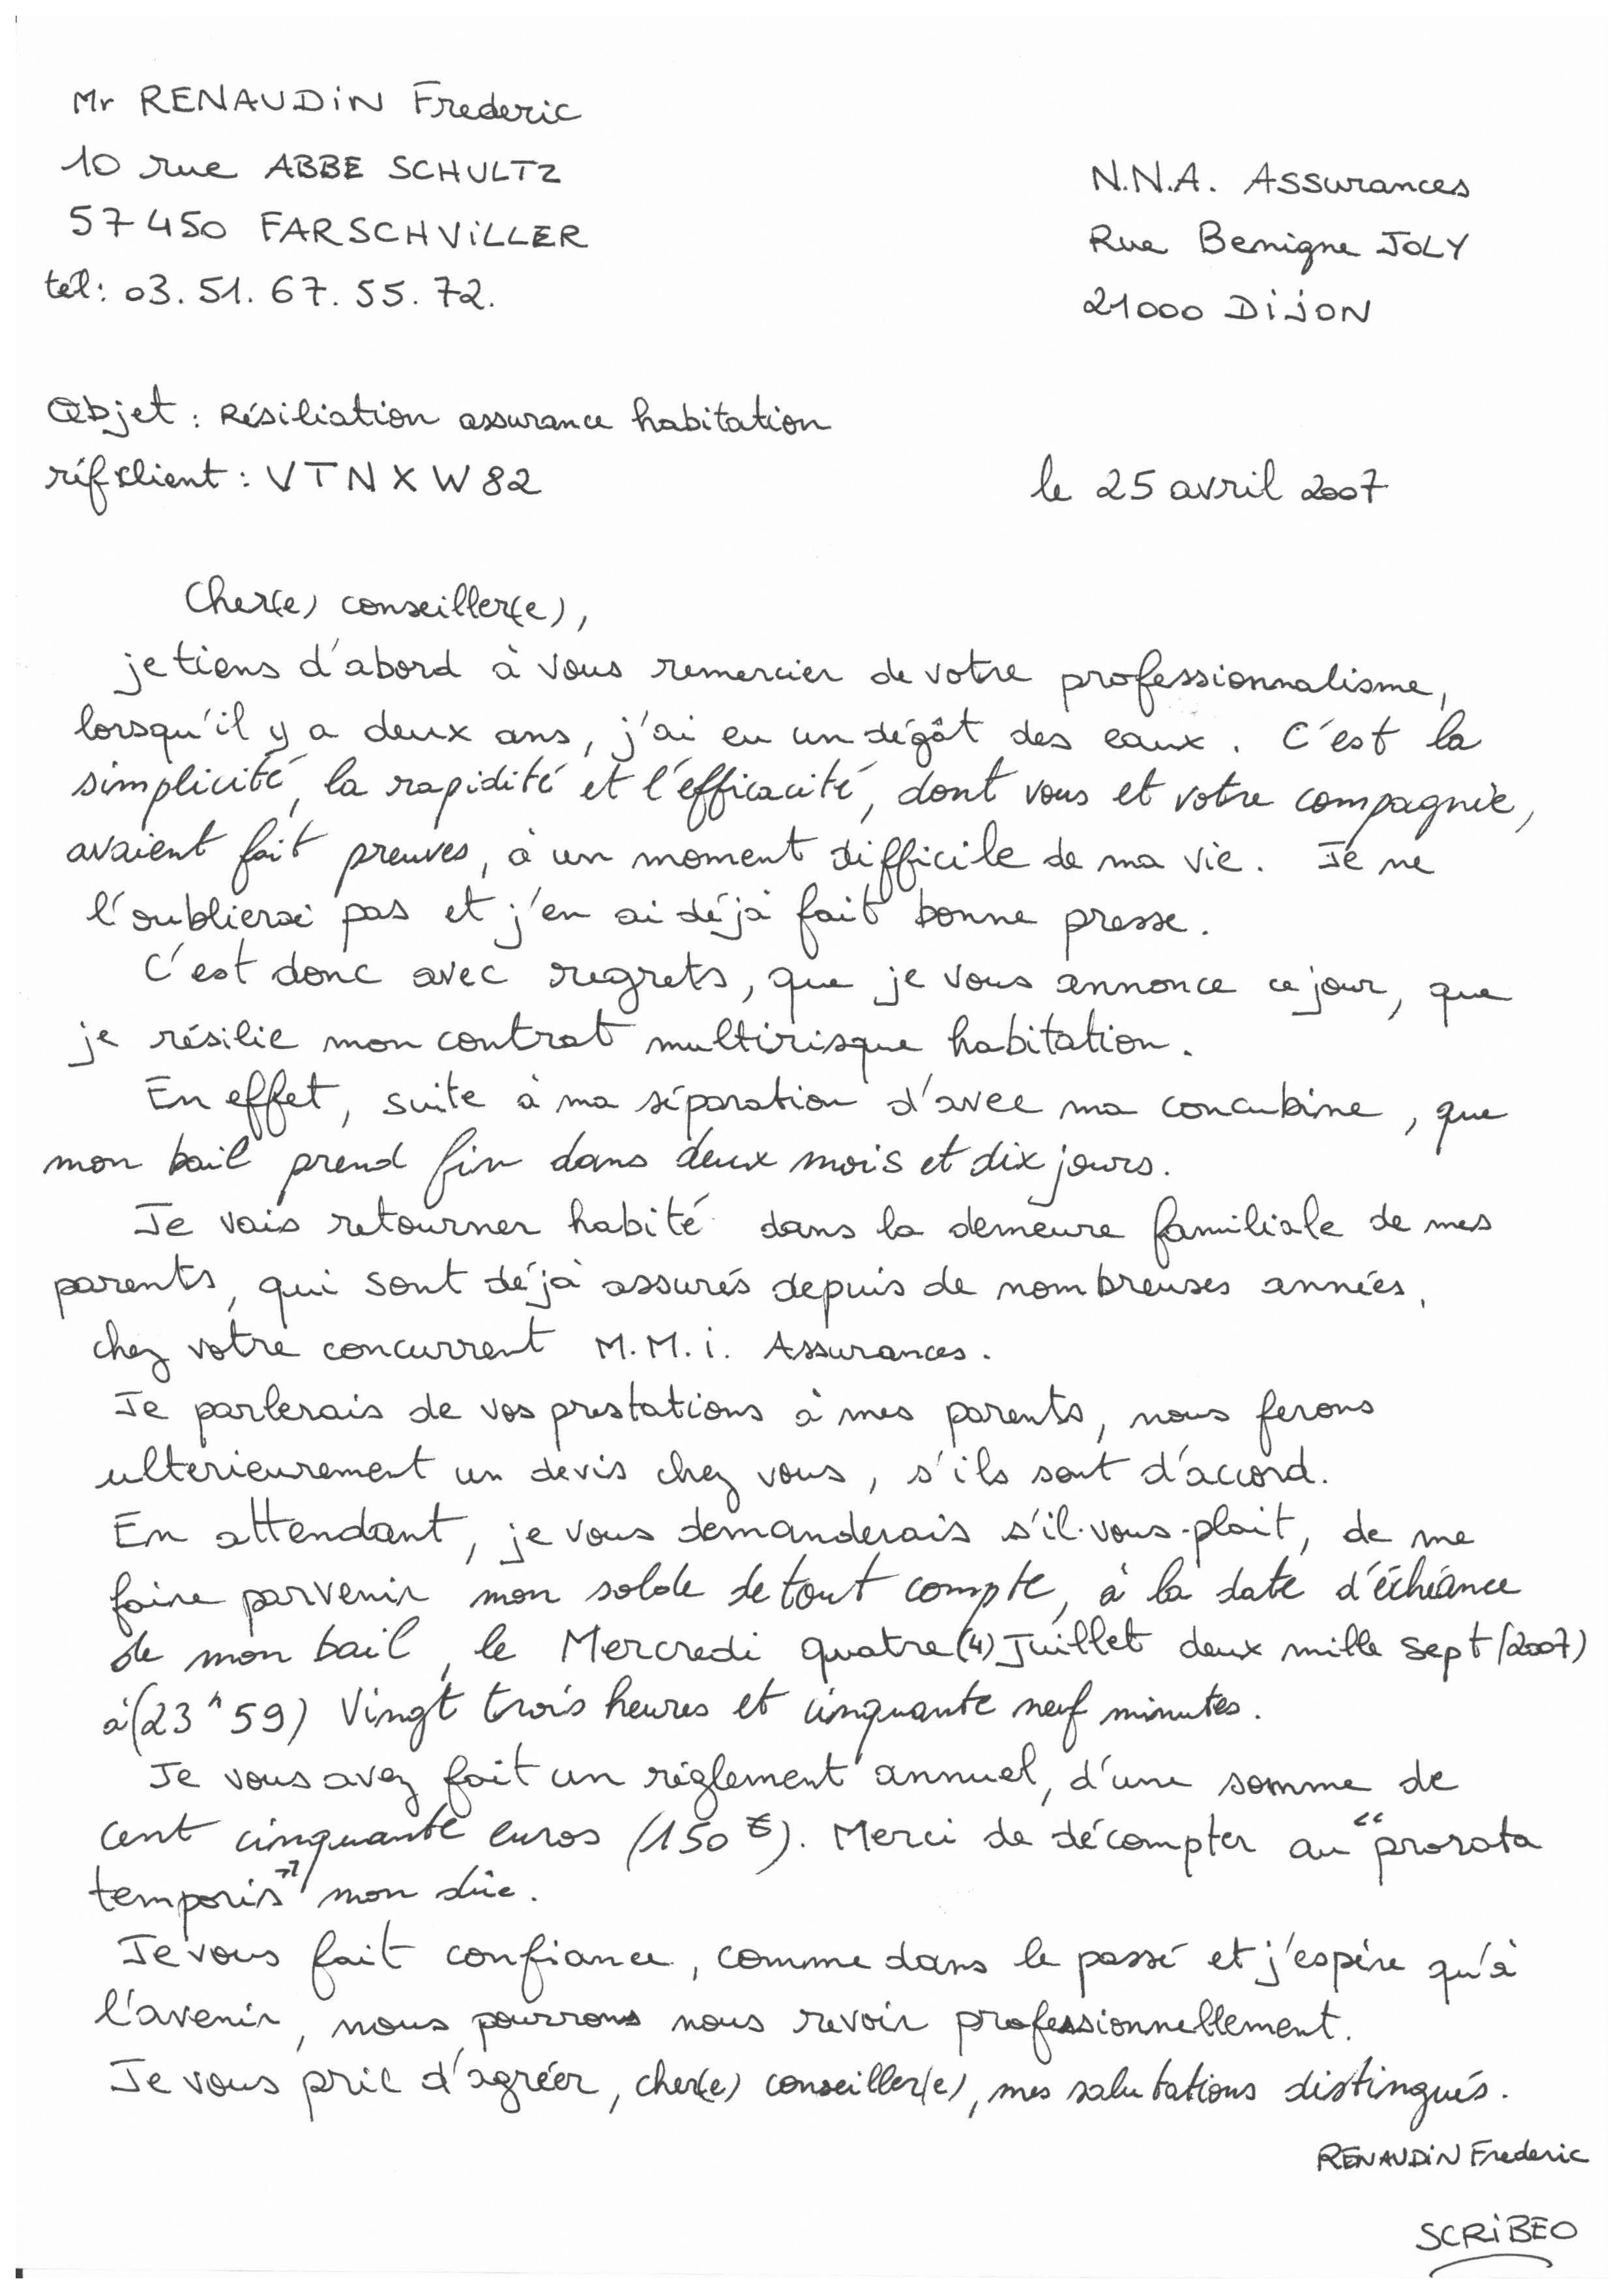 Mr RENAUDIN Frederic
10 rue ABBE SCHULTZ
57450 FARSCHVILLER
tél: 03.51.67.55.72.
N.N.A. Assurances
Rue Benigne JOLY
21000 DIJON
Objet : Résiliation assurance habitation
réf client : VTNXW82
le 25 avril 2007
Cher(e) conseiller(e),
je tiens d'abord à vous remercier de votre professionnalisme,
lorsqu'il y a deux ans, j'ai eu un dégât des eaux. C'est la
simplicité, la rapidité et l'éfficacité, dont vous et votre compagnie,
avaient fait preuves, à un moment difficile de ma vie. Je ne
l'oublierai pas et j'en ai déjà fait bonne presse.
C'est donc avec regrets, que je vous annonce ce jour, que
je résilie mon contrat multirisque habitation.
En effet, suite à ma séparation d'avec ma concubine, que
mon bail prend fin dans deux mois et dix jours.
Je vais retourner habité dans la demeure familiale de mes
parents, qui sont déjà assurés depuis de nombreuses années,
chez votre concurrent M.M.i. Assurances.
Je parlerais de vos prestations à mes parents, nous ferons
ulterieurement un devis chez vous, s'ils sont d'accord.
En attendant, je vous demanderais s'il-vous-plait, de me
faire parvenir mon solde de tout compte, à la date d'échéance
de mon bail, le Mercredi quatre (4) Juillet deux mille sept (2007)
à (23h59) Vingt trois heures et cinquante neuf minutes.
Je vous avez fait un réglement annuel, d'une somme de
cent cinquante euros (150 €). Merci de décompter au "prorata
temporis" mon dûe.
Je vous fait confiance, comme dans le passé et j'espère qu'à
l'avenir, nous pourrons nous revoir professionnellement.
Je vous prie d'agréer, cher(e) conseiller(e), mes salutations distingués.
RENAUDIN Frederic
SCRIBEO